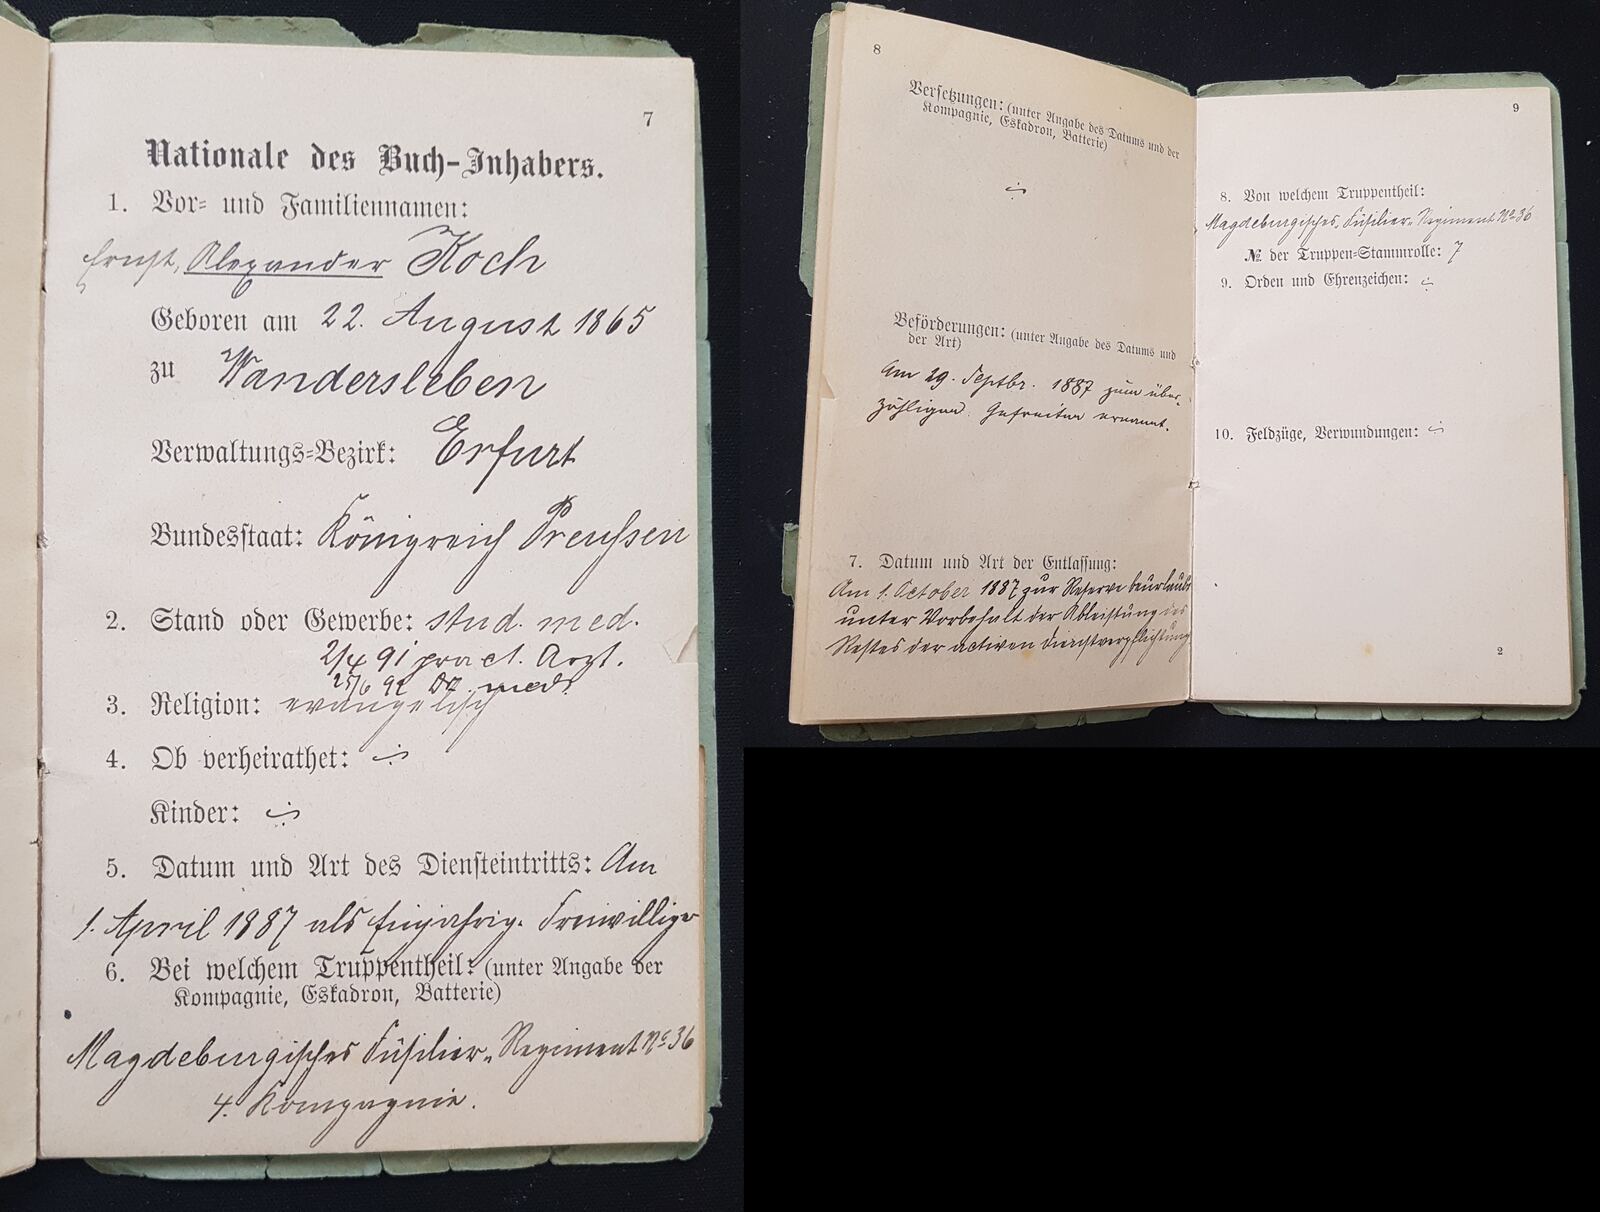 7
Nationale des Buch-Inhabers.
1. Vor- und Familiennamen:
Ernst, Alexander Koch
Geboren am 22. August 1865
zu Wandersleben
Verwaltungs-Bezirk: Erfurt
Bundesstaat: Königreich Preußen
2. Stand oder Gewerbe: stud. med.
2/4 91 pract. Arzt.
25/6 92 Dr. med.
3. Religion: evangelisch
4. Ob verheirathet: ÷
Kinder: ÷
5. Datum und Art des Diensteintritts: Am
1. April 1887 als Einjährig. Freiwilliger
6. Bei welchem Truppentheil: (unter Angabe der
Kompagnie, Eskadron, Batterie)
Magdeburgisches Füsilier-Regiment No 36
4. Kompagnie.
8
Versetzungen: (unter Angabe des Datums und der
Kompagnie, Eskadron, Batterie)
÷
Beförderungen: (unter Angabe des Datums und
der Art)
Am 29. Septbr. 1887 zum über-
zähligen Gefreiten ernannt.
7. Datum und Art der Entlassung:
Am 1. October 1887 zur Reserve beurlaubt
unter Vorbehalt der Ableistung des
Restes der activen Dienstverpflichtung
9
8. Von welchem Truppentheil:
Magdeburgisches Füsilier-Regiment No 36
No der Truppen-Stammrolle: 7
9. Orden und Ehrenzeichen: ÷
10. Feldzüge, Verwundungen: ÷
2